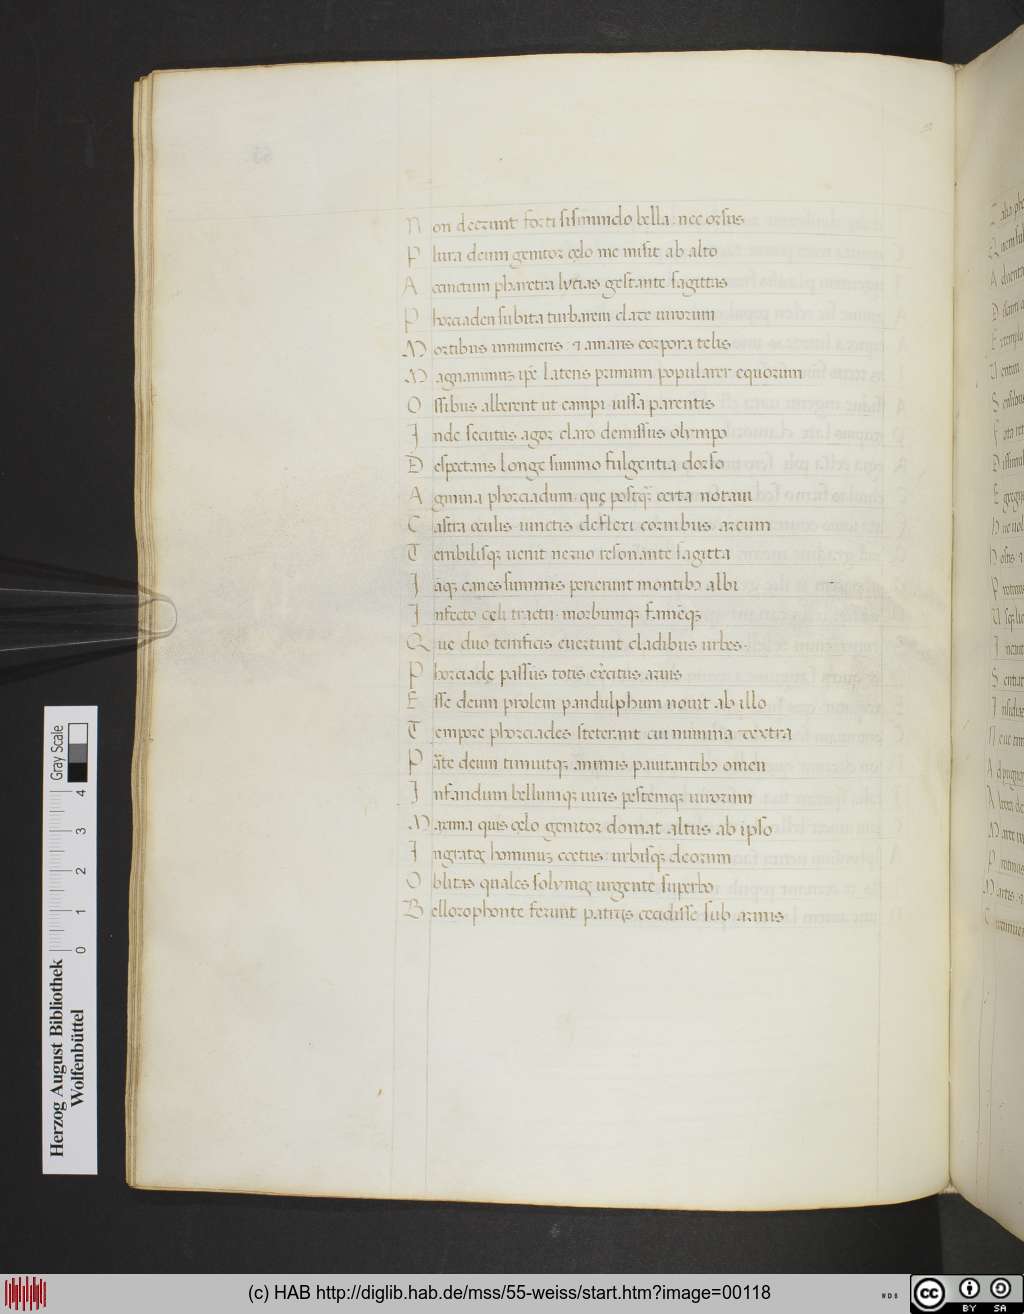 Non deerunt forti sismundo bella: nec orsus
Plura deum genitor celo me misit ab alto
Accinctum pharetra lycias gestante sagittas
Phorciaden subita turbarem clade uirorum
Mortibus innumeris & amaris corpora telis
Magnanimus ip̄e latens primum popularer equorum
Ossibus alberent ut campi iussa parentis
Inde secutus agor claro demissus olympo
Despectans longe summo fulgentia dorso
Agmina phorciadum quę postq̃ certa notaui
Castra oculis iunctis deflexi cornibus arcum
Terribilisq; uenit neruo resonante sagitta
Iāq; canes summis perierunt montib; albi
Infecto celi tractu morbumq; famēq;
Que duo terrificis euertunt cladibus urbes
Phorciadę passus totis exercitus aruis
Esse deum prolem pandulphum nouit ab illo
Tempore phorciades steterant cui numina dextra
Parte deum timuitq; animis pauitantib; omen
Infandum bellumq; uiris pestemq; uirorum
Maxima quis celo genitor domat altus ab ipso
Ingratę hominum coetus urbisq; deorum
Oblitas quales solymę urgente superbo
Bellorophonte ferunt patrijs cecidisse sub armis
Herzog August Bibliothek
Wolfenbüttel
0 1 2 3 4
Gray Scale
(c) HAB http://diglib.hab.de/mss/55-weiss/start.htm?image=00118
cc BY SA